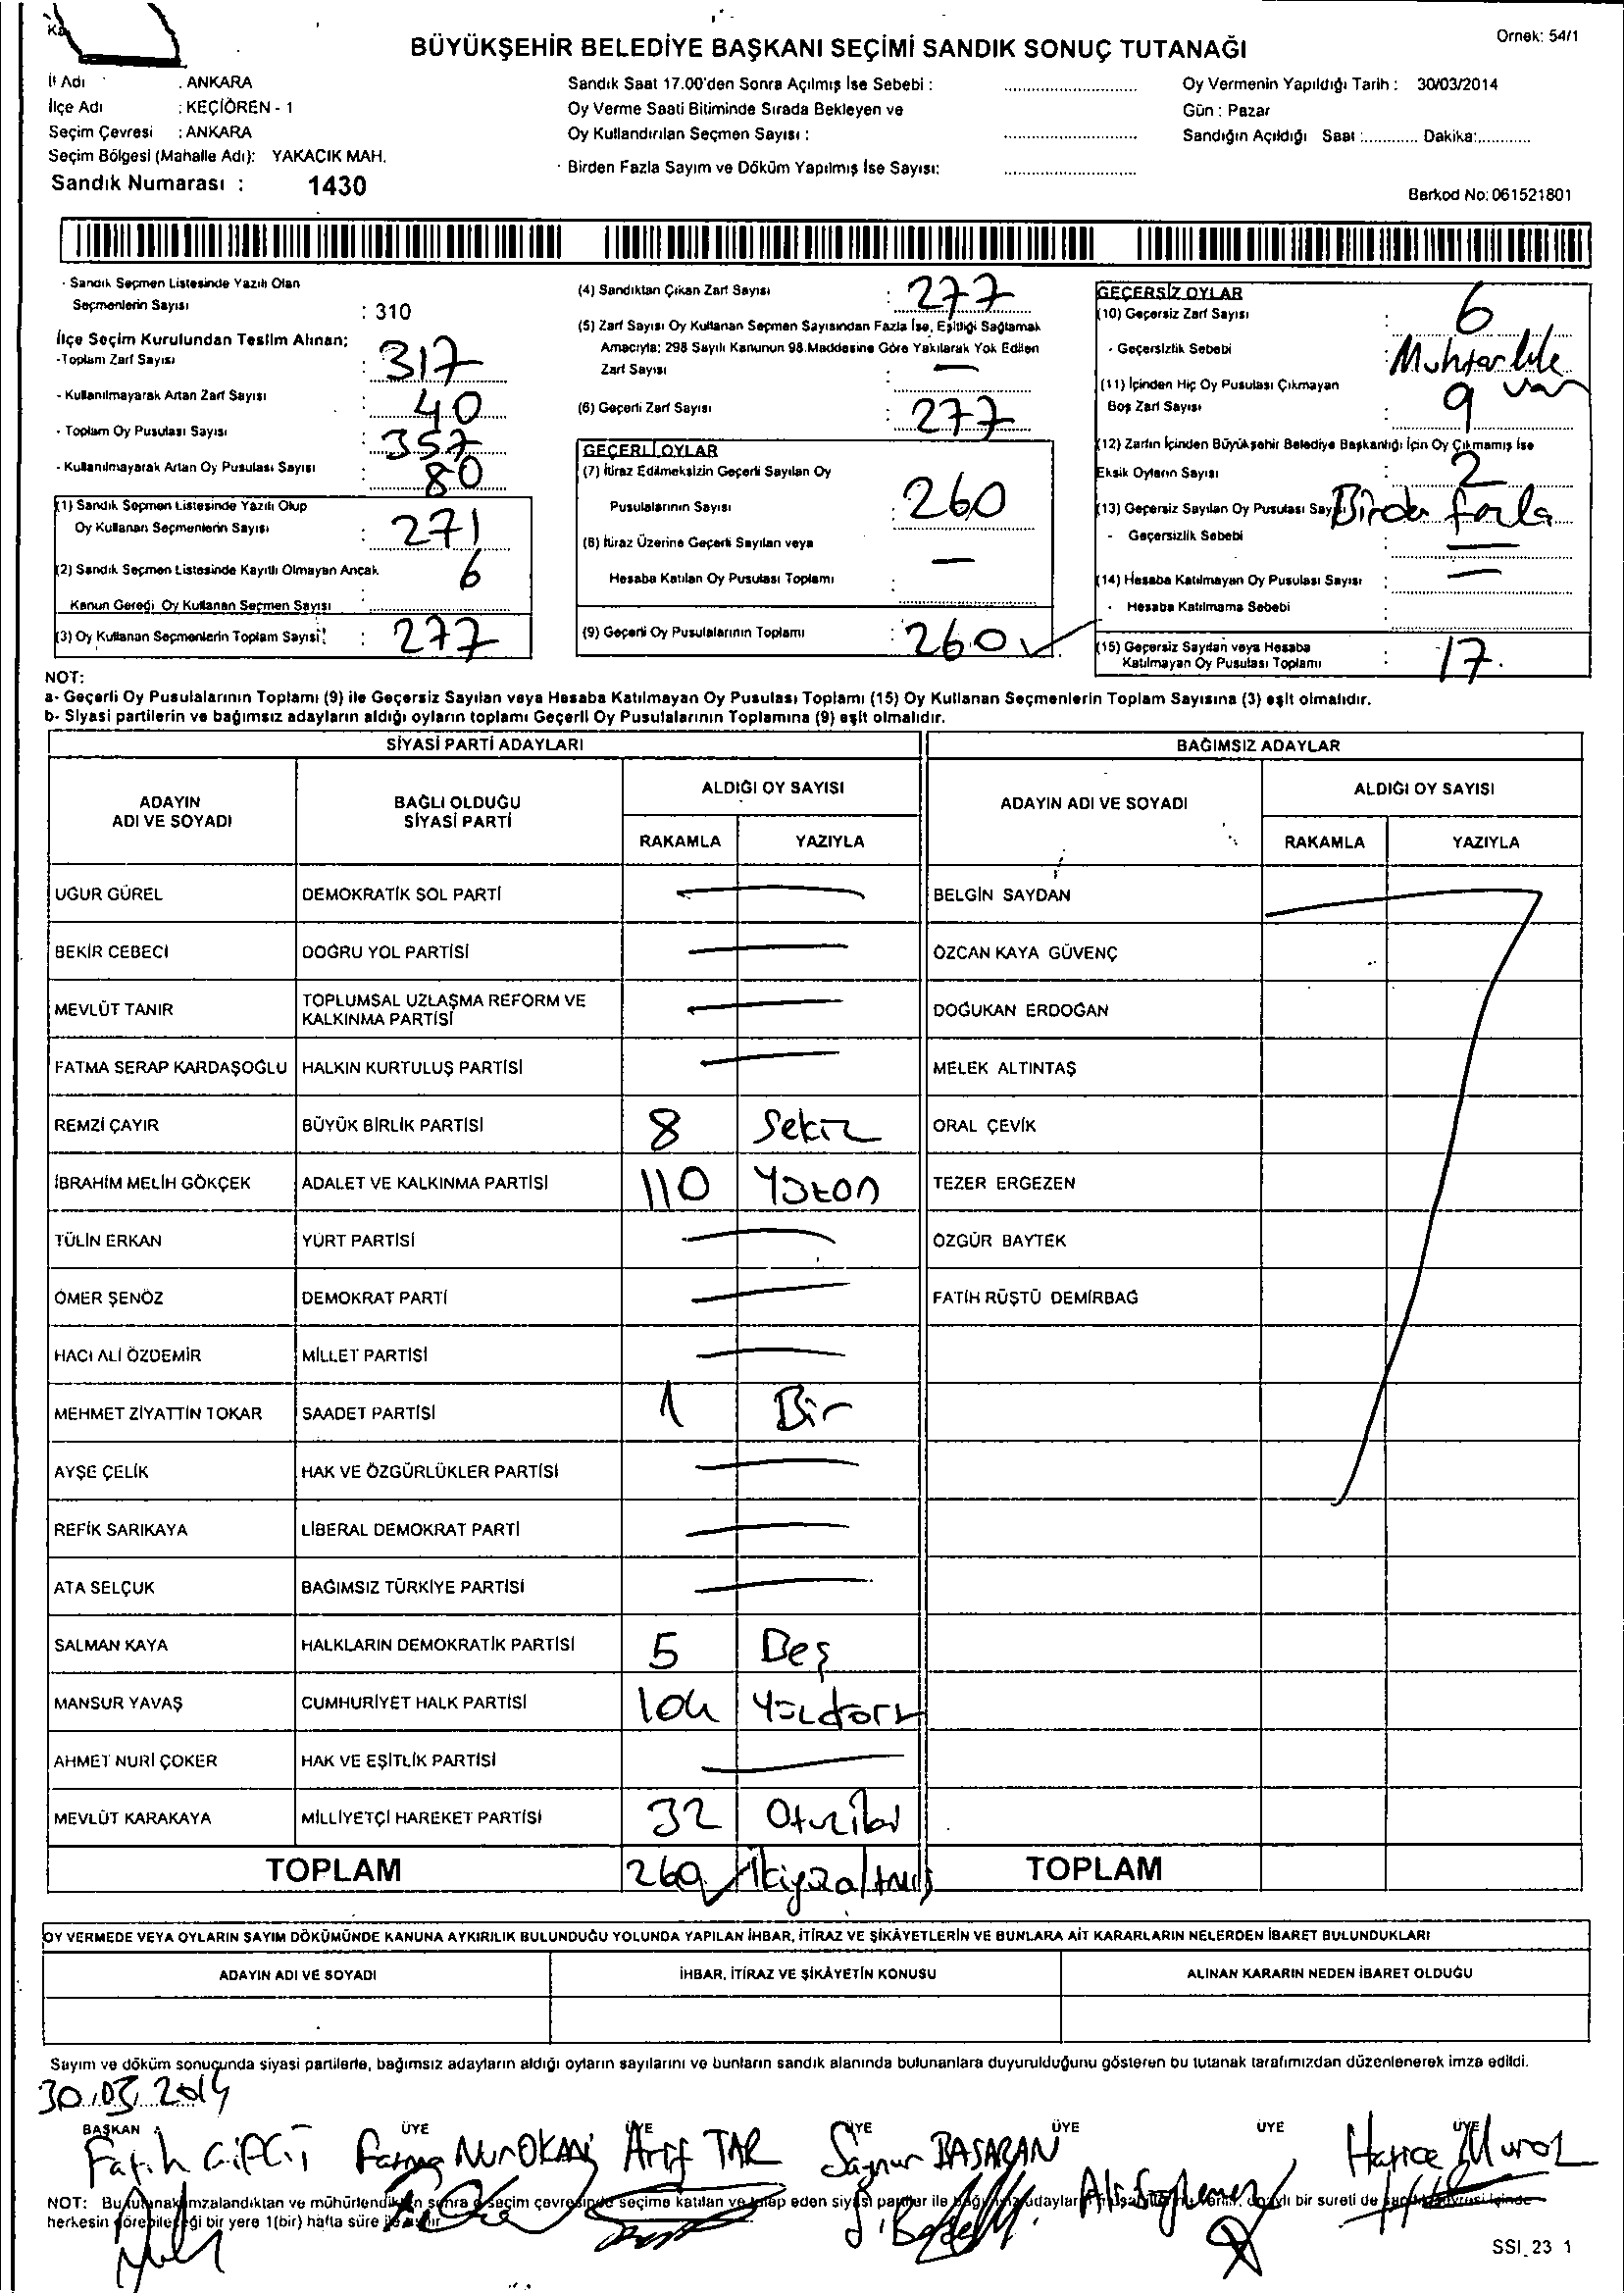 Örnek: 54/1
BÜYÜKŞEHİR BELEDİYE BAŞKANI SEÇİMİ SANDIK SONUÇ TUTANAĞI
İl Adı : ANKARA
İlçe Adı : KEÇİÖREN - 1
Seçim Çevresi : ANKARA
Seçim Bölgesi (Mahalle Adı): YAKACIK MAH.
Sandık Numarası : 1430
Sandık Saat 17.00'den Sonra Açılmış İse Sebebi :
Oy Verme Saati Bitiminde Sırada Bekleyen ve
Oy Kullandırılan Seçmen Sayısı :
Birden Fazla Sayım ve Döküm Yapılmış İse Sayısı:
Oy Vermenin Yapıldığı Tarih : 30/03/2014
Gün : Pazar
Sandığın Açıldığı Saat :............. Dakika:.............
Barkod No: 061521801
- Sandık Seçmen Listesinde Yazılı Olan
Seçmenlerin Sayısı : 310
İlçe Seçim Kurulundan Teslim Alınan;
-Toplam Zarf Sayısı : 317
- Kullanılmayarak Artan Zarf Sayısı : 40
- Toplam Oy Pusulası Sayısı : 357
- Kullanılmayarak Artan Oy Pusulası Sayısı : 80
(1) Sandık Seçmen Listesinde Yazılı Olup
Oy Kullanan Seçmenlerin Sayısı : 271
(2) Sandık Seçmen Listesinde Kayıtlı Olmayan Ancak
Kanun Gereği Oy Kullanan Seçmen Sayısı : 6
(3) Oy Kullanan Seçmenlerin Toplam Sayısı : 277
(4) Sandıktan Çıkan Zarf Sayısı : 277
(5) Zarf Sayısı Oy Kullanan Seçmen Sayısından Fazla İse, Eşitliği Sağlamak
Amacıyla; 298 Sayılı Kanunun 98.Maddesine Göre Yakılarak Yok Edilen
Zarf Sayısı : —
(6) Geçerli Zarf Sayısı : 277
GEÇERLİ OYLAR
(7) İtiraz Edilmeksizin Geçerli Sayılan Oy
Pusulalarının Sayısı : 260
(8) İtiraz Üzerine Geçerli Sayılan veya
Hesaba Katılan Oy Pusulası Toplamı : —
(9) Geçerli Oy Pusulalarının Toplamı : 260
GEÇERSİZ OYLAR
(10) Geçersiz Zarf Sayısı : 6
- Geçersizlik Sebebi : Muhtarlık var
(11) İçinden Hiç Oy Pusulası Çıkmayan
Boş Zarf Sayısı : 9
(12) Zarfın İçinden Büyükşehir Belediye Başkanlığı İçin Oy Çıkmamış İse
Eksik Oyların Sayısı : 2
(13) Geçersiz Sayılan Oy Pusulası Sayısı Birden fazla
- Geçersizlik Sebebi : —
(14) Hesaba Katılmayan Oy Pusulası Sayısı : —
- Hesaba Katılmama Sebebi :
(15) Geçersiz Sayılan veya Hesaba
Katılmayan Oy Pusulası Toplamı : 17
NOT:
a- Geçerli Oy Pusulalarının Toplamı (9) ile Geçersiz Sayılan veya Hesaba Katılmayan Oy Pusulası Toplamı (15) Oy Kullanan Seçmenlerin Toplam Sayısına (3) eşit olmalıdır.
b- Siyasi partilerin ve bağımsız adayların aldığı oyların toplamı Geçerli Oy Pusulalarının Toplamına (9) eşit olmalıdır.
SİYASİ PARTİ ADAYLARI
ADAYIN ADI VE SOYADI
BAĞLI OLDUĞU SİYASİ PARTİ
ALDIĞI OY SAYISI
RAKAMLA YAZIYLA
UĞUR GÜREL DEMOKRATİK SOL PARTİ —
BEKİR CEBECİ DOĞRU YOL PARTİSİ —
MEVLÜT TANIR TOPLUMSAL UZLAŞMA REFORM VE
KALKINMA PARTİSİ —
FATMA SERAP KARDAŞOĞLU HALKIN KURTULUŞ PARTİSİ —
REMZİ ÇAYIR BÜYÜK BİRLİK PARTİSİ 8 Sekiz
İBRAHİM MELİH GÖKÇEK ADALET VE KALKINMA PARTİSİ 110 Yüzon
TÜLİN ERKAN YURT PARTİSİ —
ÖMER ŞENÖZ DEMOKRAT PARTİ —
HACI ALİ ÖZDEMİR MİLLET PARTİSİ —
MEHMET ZİYATTİN TOKAR SAADET PARTİSİ 1 Bir
AYŞE ÇELİK HAK VE ÖZGÜRLÜKLER PARTİSİ —
REFİK SARIKAYA LİBERAL DEMOKRAT PARTİ —
ATA SELÇUK BAĞIMSIZ TÜRKİYE PARTİSİ —
SALMAN KAYA HALKLARIN DEMOKRATİK PARTİSİ 5 Beş
MANSUR YAVAŞ CUMHURİYET HALK PARTİSİ 104 Yüzdört
AHMET NURİ ÇOKER HAK VE EŞİTLİK PARTİSİ —
MEVLÜT KARAKAYA MİLLİYETÇİ HAREKET PARTİSİ 32 Otuziki
TOPLAM 260 İkiyüzaltmış
BAĞIMSIZ ADAYLAR
ADAYIN ADI VE SOYADI
ALDIĞI OY SAYISI
RAKAMLA YAZIYLA
BELGİN SAYDAN
ÖZCAN KAYA GÜVENÇ
DOĞUKAN ERDOĞAN
MELEK ALTINTAŞ
ORAL ÇEVİK
TEZER ERGEZEN
ÖZGÜR BAYTEK
FATİH RÜŞTÜ DEMİRBAĞ
TOPLAM
OY VERMEDE VEYA OYLARIN SAYIM DÖKÜMÜNDE KANUNA AYKIRILIK BULUNDUĞU YOLUNDA YAPILAN İHBAR, İTİRAZ VE ŞİKÂYETLERİN VE BUNLARA AİT KARARLARIN NELERDEN İBARET BULUNDUKLARI
ADAYIN ADI VE SOYADI İHBAR, İTİRAZ VE ŞİKÂYETİN KONUSU ALINAN KARARIN NEDEN İBARET OLDUĞU
Sayım ve döküm sonucunda siyasi partilerle, bağımsız adayların aldığı oyların sayılarını ve bunların sandık alanında bulunanlara duyurulduğunu gösteren bu tutanak tarafımızdan düzenlenerek imza edildi.
30.03.2014
BAŞKAN ÜYE ÜYE ÜYE ÜYE ÜYE ÜYE
Fatih Çiftçi Fatma Nur OKAN Arif TAR Saynur BAŞARAN Ali Söylemez Hatice Murat
NOT: Bu tutanak imzalandıktan ve mühürlendikten sonra seçim çevresinde seçime katılan ve talep eden siyasi partiler ile bağımsız adayların müşahitlerine verilir, onaylı bir sureti de sandık çevresi içinde
herkesin görebileceği bir yere 1(bir) hafta süre ile asılır.
SSI_23 1